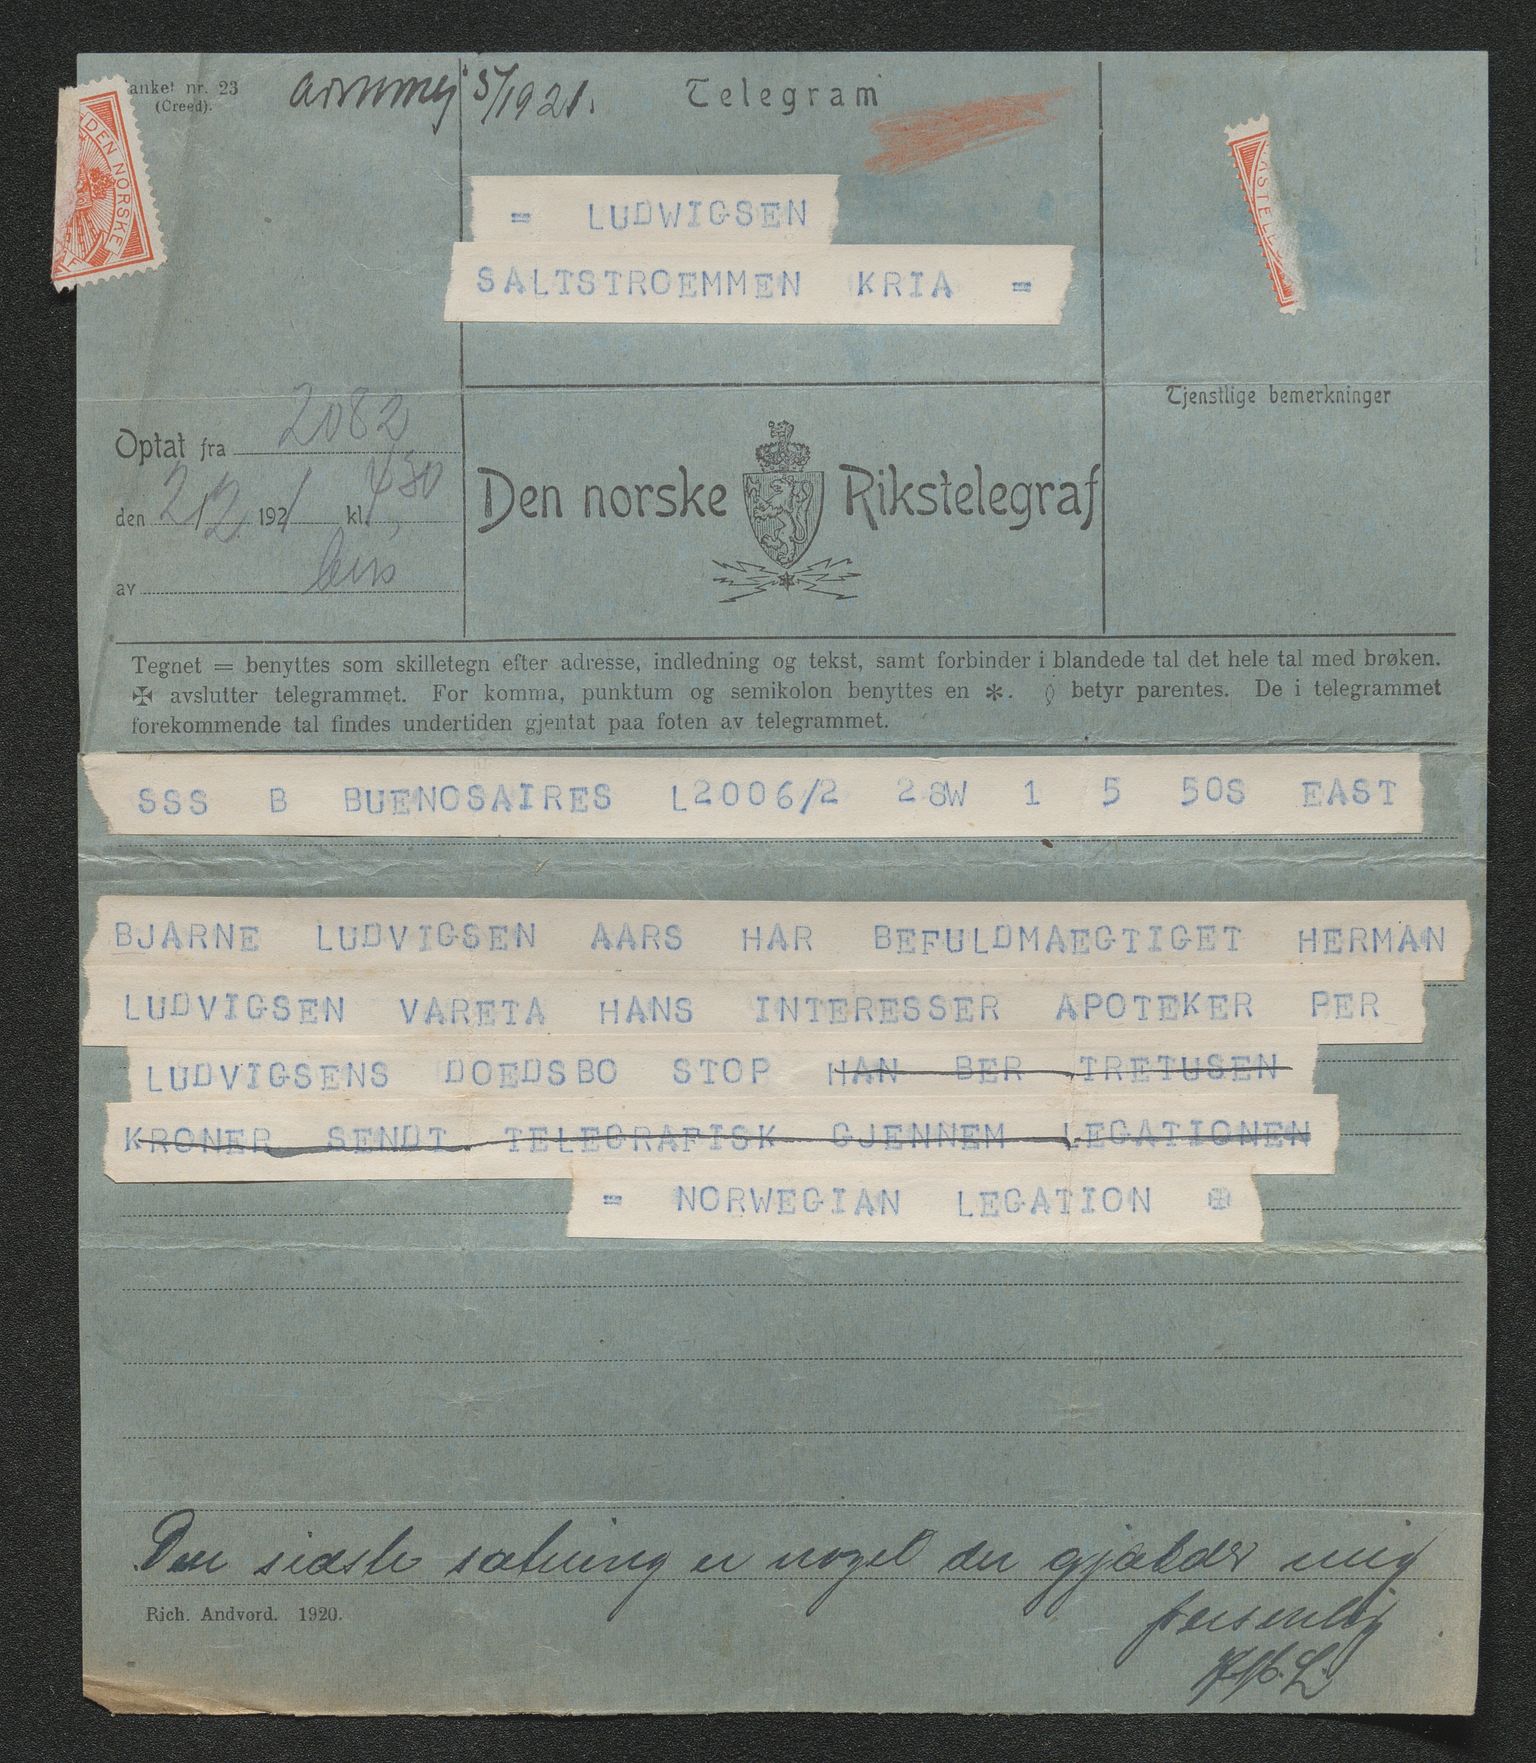 anket nr. 23
(Creed).
5/1921.
Telegram
DEN NORSKE
= LUDWIGSEN
SALTSTROEMMEN KRIA =
Optat fra 2082
den 2/2 1921 kl. 4,30
av
Den norske Rikstelegraf
Tjenstlige bemerkninger
Tegnet = benyttes som skilletegn efter adresse, indledning og tekst, samt forbinder i blandede tal det hele tal med brøken.
✠ avslutter telegrammet. For komma, punktum og semikolon benyttes en ✻. () betyr parentes. De i telegrammet
forekommende tal findes undertiden gjentat paa foten av telegrammet.
SSS B BUENOSAIRES L2006/2 28W 1 5 50S EAST
BJARNE LUDVIGSEN AARS HAR BEFULDMAEGTIGET HERMAN
LUDVIGSEN VARETA HANS INTERESSER APOTEKER PER
LUDVIGSENS DOEDSBO STOP HAN BER TRETUSEN
KRONER SENDT TELEGRAFISK GJENNEM LEGATIONEN
= NORWEGIAN LEGATION ✠
Den sidste sætning er noget der gjælder mig
personlig
Rich. Andvord. 1920.